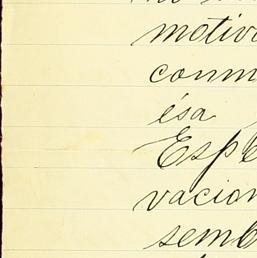 motiv
conm
ésa
Espe
vacion
semb